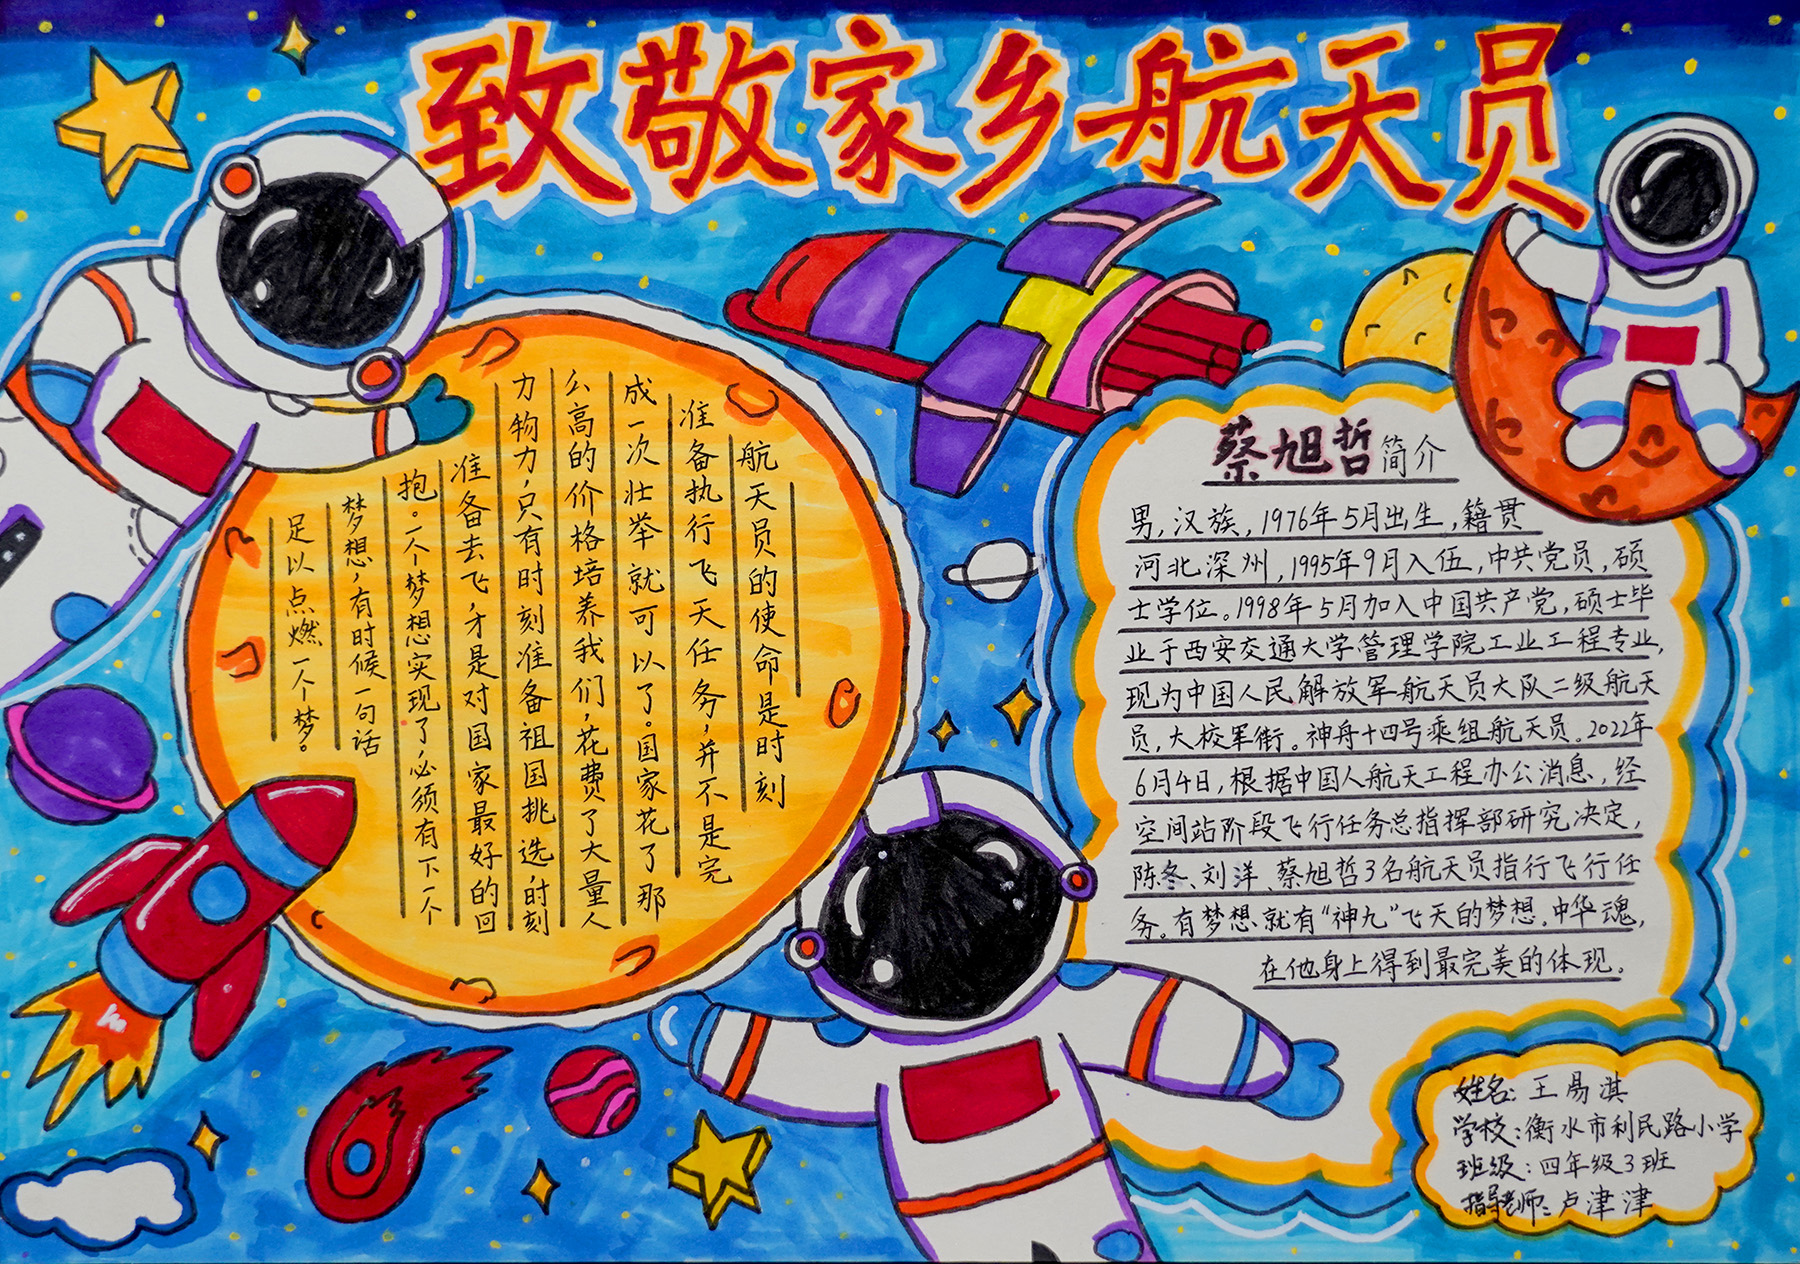 致敬家乡航天员
航天员的使命是时刻
准备执行飞天任务，并不是完
成一次壮举就可以了。国家花了那
么高的价格培养我们，花费了大量人
力物力，只有时刻准备祖国挑选，时刻
准备去飞，才是对国家最好的回
抱。一个梦想实现了，必须有下一个
梦想，有时候一句话
足以点燃一个梦。
蔡旭哲简介
男，汉族，1976年5月出生，籍贯
河北深州，1995年9月入伍，中共党员，硕
士学位。1998年5月加入中国共产党，硕士毕
业于西安交通大学管理学院工业工程专业，
现为中国人民解放军航天员大队二级航天
员，大校军衔。神舟十四号乘组航天员。2022年
6月4日，根据中国人航天工程办公消息，经
空间站阶段飞行任务总指挥部研究决定，
陈冬、刘洋、蔡旭哲3名航天员指行飞行任
务。有梦想就有“神九”飞天的梦想，中华魂，
在他身上得到最完美的体现。
姓名：王易淇
学校：衡水市利民路小学
班级：四年级3班
指导老师：卢津津